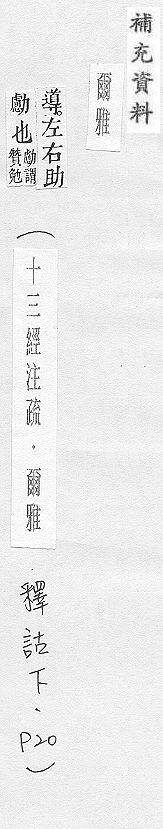 補充資料
爾雅
導左右助
勴也勴謂贊勉
（十三經注疏．爾雅．釋詁下、P20）